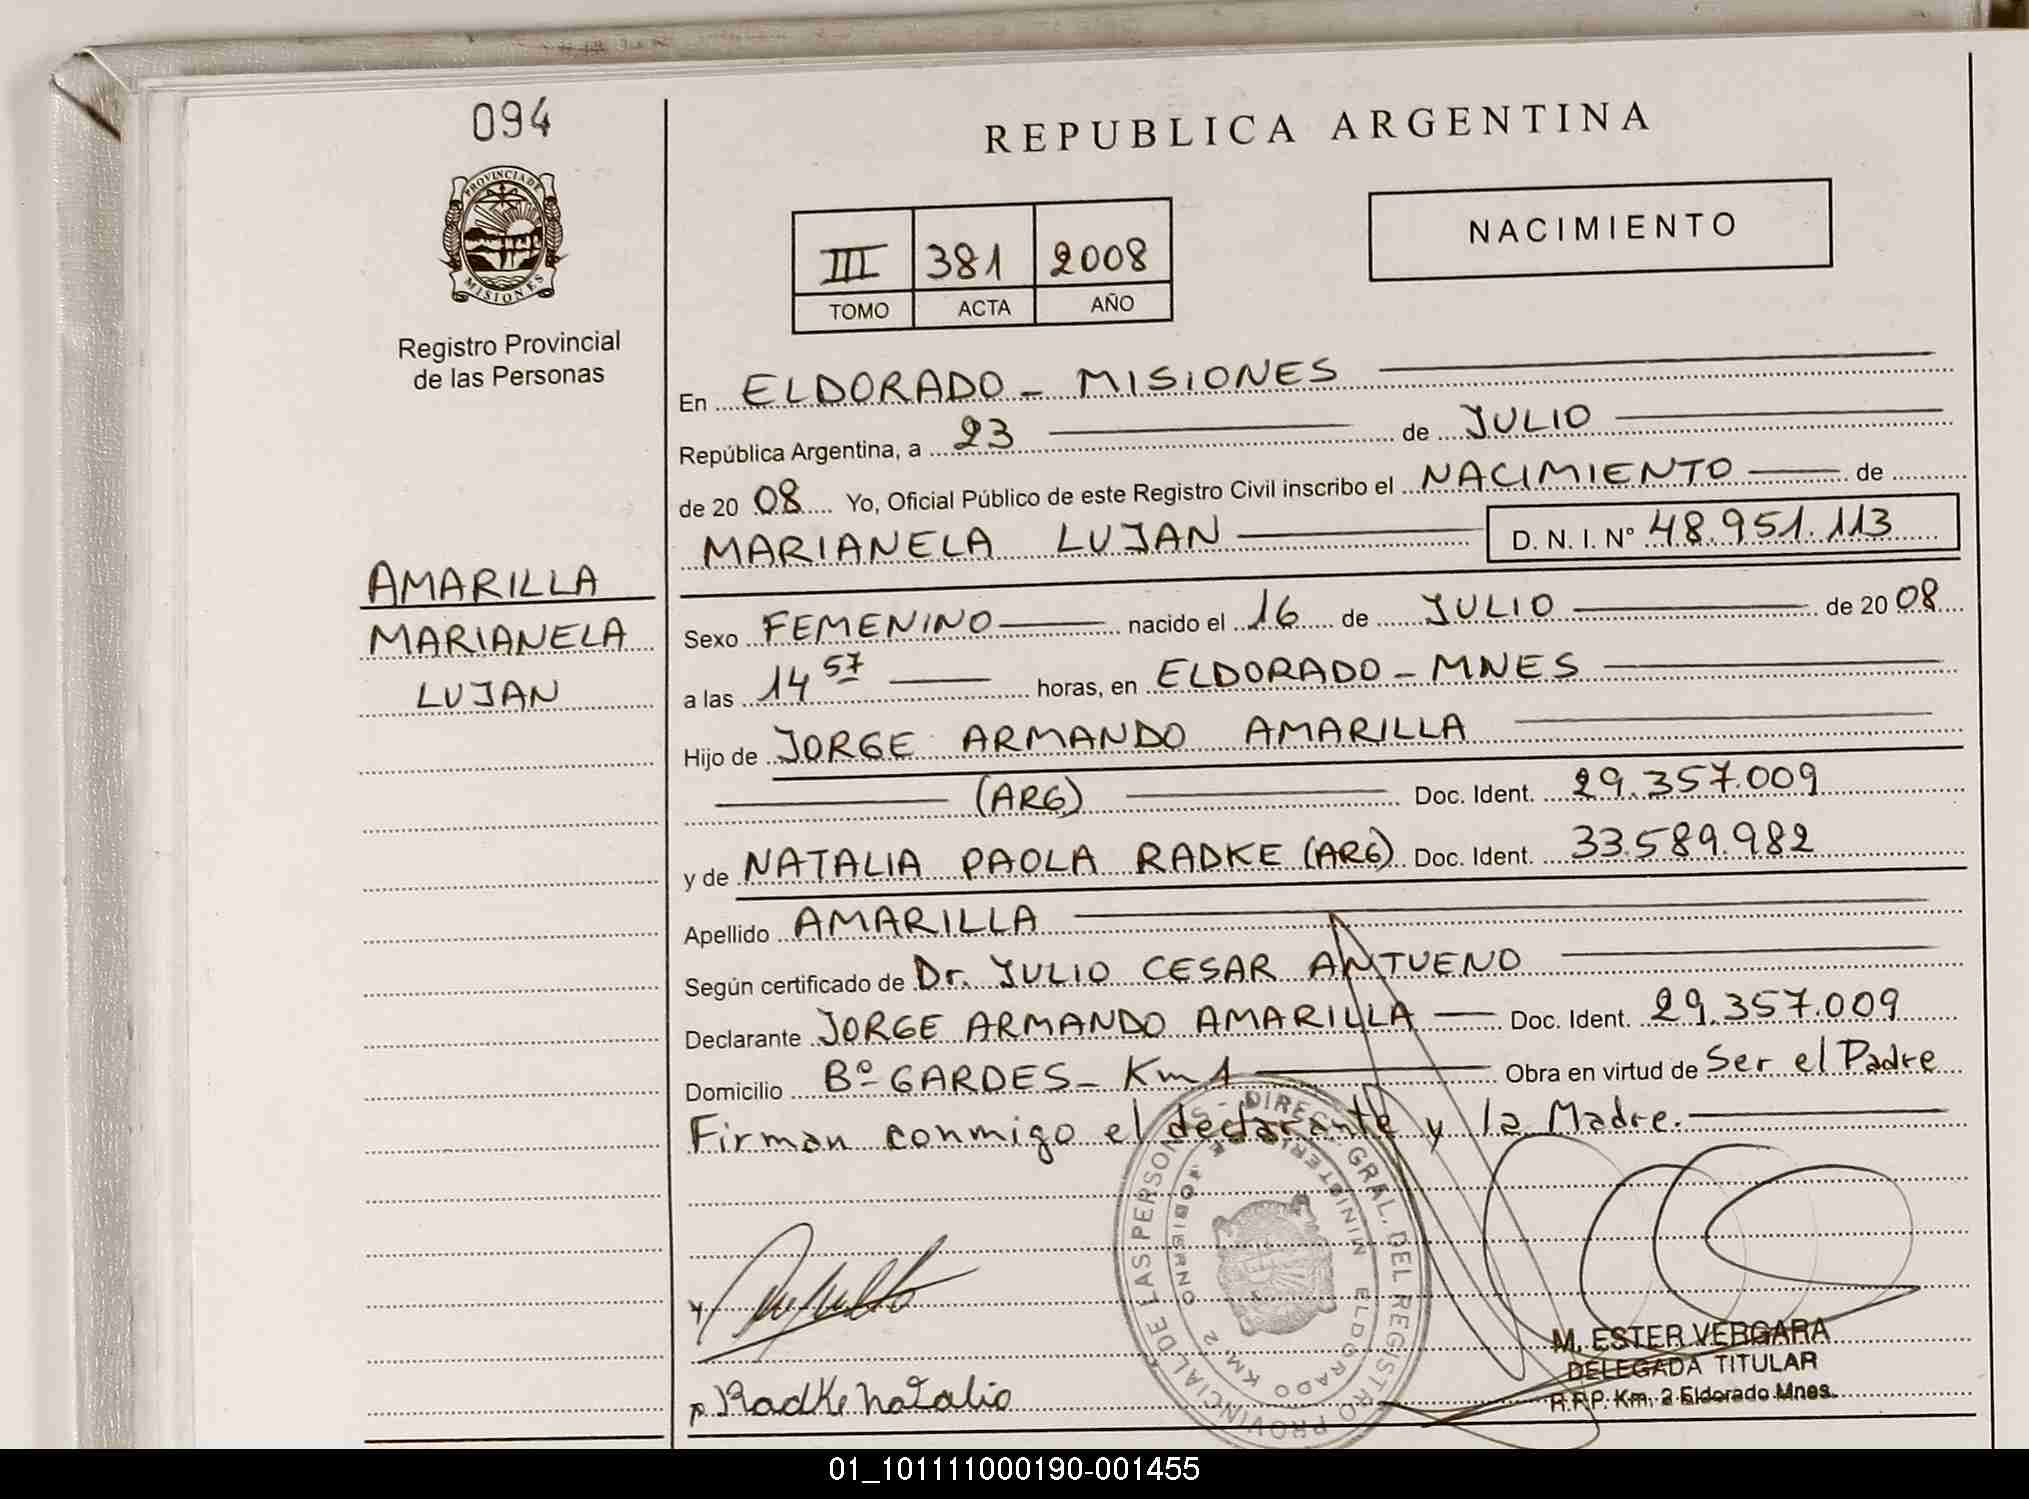 094
PROVINCIA DE
MISIONES
Registro Provincial
de las Personas
AMARILLA
MARIANELA
LUJAN
REPUBLICA ARGENTINA
III 381 2008
TOMO ACTA AÑO
NACIMIENTO
En ELDORADO - MISIONES
República Argentina, a 23 de JULIO
de 20 08 Yo, Oficial Público de este Registro Civil inscribo el NACIMIENTO de
MARIANELA LUJAN D. N. I. Nº 48.951.113
Sexo FEMENINO nacido el 16 de JULIO de 20 08
a las 14 57 horas, en ELDORADO - MNES
Hijo de JORGE ARMANDO AMARILLA
(ARG) Doc. Ident. 29.357.009
y de NATALIA PAOLA RADKE (ARG) Doc. Ident. 33.589.982
Apellido AMARILLA
Según certificado de Dr. JULIO CESAR ANTUENO
Declarante JORGE ARMANDO AMARILLA Doc. Ident. 29.357.009
Domicilio Bº GARDES - Km 1 Obra en virtud de Ser el Padre
Firman conmigo el declarante y la Madre.
DIREC. GRAL. DEL REGISTRO PROVINCIAL DE LAS PERSONAS
MINISTERIO GOBIERNO
ELDORADO KM 2
Radke Natalia
M. ESTER VERGARA
DELEGADA TITULAR
R.P.P. Km. 2 Eldorado Mnes.
01_101111000190-001455